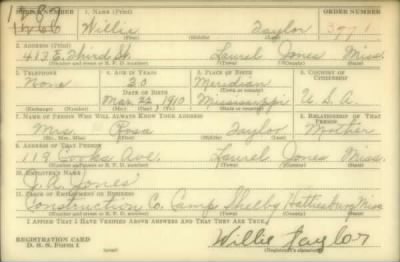 SERIAL NUMBER 1. NAME (Print) ORDER NUMBER
1287
Willie Taylor 3771
(First) (Middle) (Last)
2. ADDRESS (Print)
413 E. Third St. Laurel Jones Miss.
(Number and street or R. F. D. number) (Town) (County) (State)
3. TELEPHONE 4. AGE IN YEARS 5. PLACE OF BIRTH 6. COUNTRY OF CITIZENSHIP
None 30 Meridian
DATE OF BIRTH (Town or county)
Mar. 22, 1910 Mississippi U.S.A.
(Exchange) (Number) (Mo.) (Day) (Yr.) (State or country)
7. NAME OF PERSON WHO WILL ALWAYS KNOW YOUR ADDRESS 8. RELATIONSHIP OF THAT PERSON
Mrs. Rosa Taylor Mother
(Mr., Mrs., Miss) (First) (Middle) (Last)
9. ADDRESS OF THAT PERSON
119 Cooks Ave. Laurel Jones Miss.
(Number and street or R. F. D. number) (Town) (County) (State)
10. EMPLOYER'S NAME
J. A. Jones
11. PLACE OF EMPLOYMENT OR BUSINESS
Construction Co. Camp Shelby Hattiesburg Miss
(Number and street or R. F. D. number) (Town) (County) (State)
I AFFIRM THAT I HAVE VERIFIED ABOVE ANSWERS AND THAT THEY ARE TRUE.
REGISTRATION CARD
D. S. S. Form 1
Willie Taylor
(Registrant's signature)